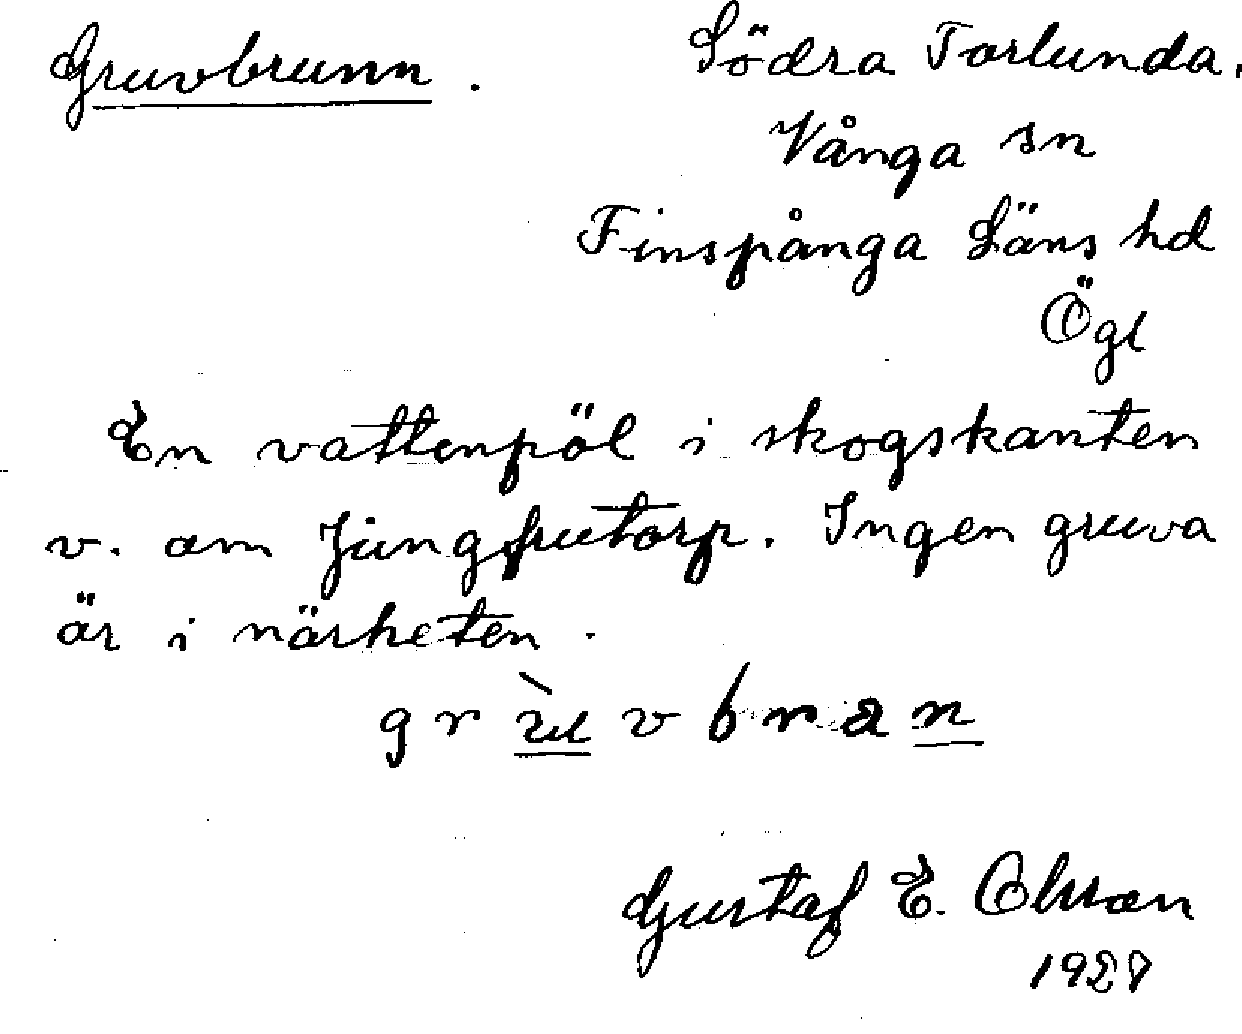 Gruvbrunn. Södra Torlunda,
Vånga sn
Finspånga Läns hd
Ögl
En vattenpöl i skogskanten
v. om Jungfrutorp. Ingen gruva
är i närheten.
Gustaf E. Olsson
1927